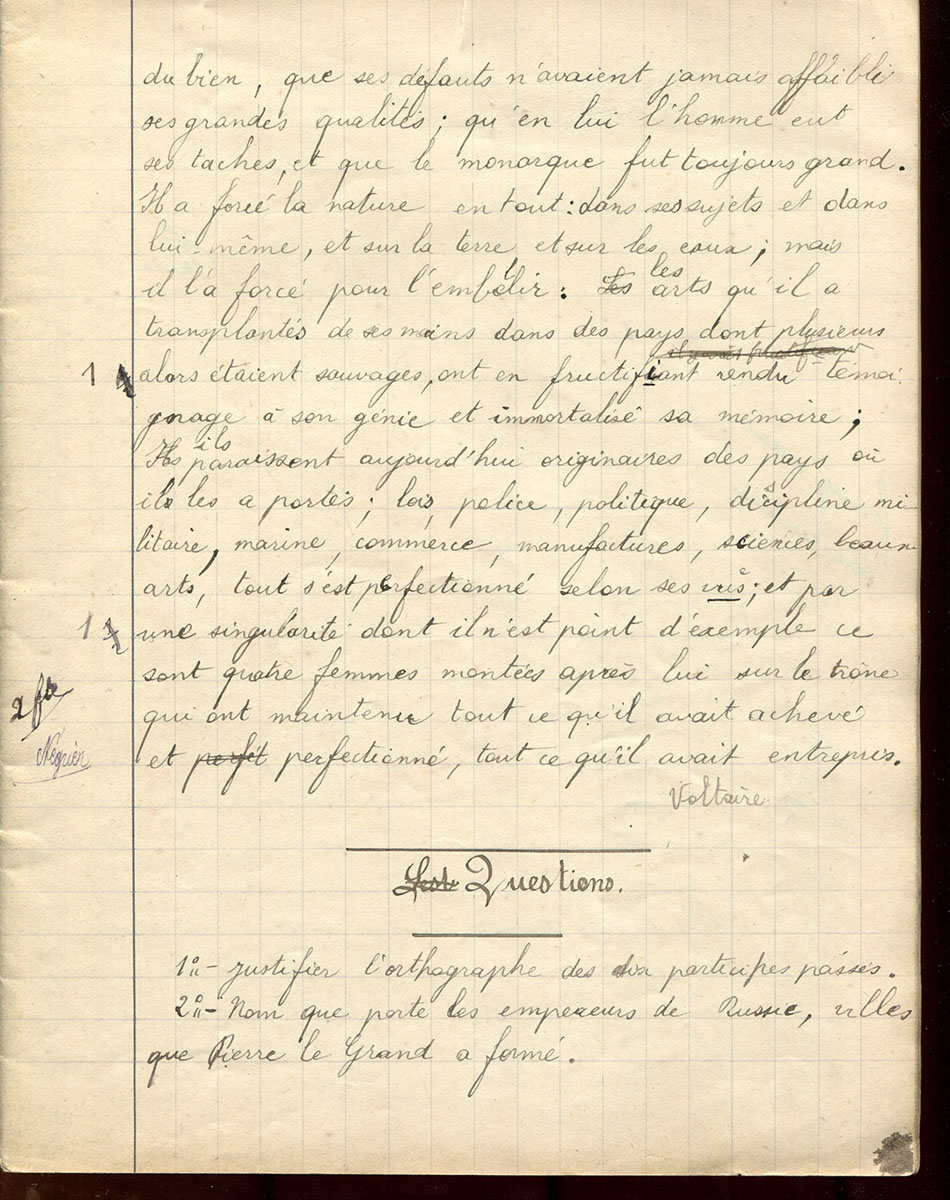 du bien, que ses défauts n'avaient jamais affaibli
ses grandes qualités; qu'en lui l'homme eut
ses taches, et que le monarque fut toujours grand.
Il a forcé la nature en tout: dans ses sujets et dans
lui-même, et sur la terre et sur les eaux; mais
il l'a forcé pour l'embellir: les arts qu'il a
transplantés de ses mains dans des pays dont plusieurs
1 alors étaient sauvages, ont en fructifiant rendu témoi-
gnage à son génie et immortalisé sa mémoire;
ils paraissent aujourd'hui originaires des pays où
il les a portés; lois, police, politique, discipline mi-
litaire, marine, commerce, manufactures, sciences, beaux
arts, tout s'est perfectionné selon ses vues; et par
1 une singularité dont il n'est point d'exemple ce
sont quatre femmes montées après lui sur le trône
2 ftes
qui ont maintenu tout ce qu'il avait achevé
Négrier
et perfectionné, tout ce qu'il avait entrepris.
Voltaire
Questions.
1º- Justifier l'orthographe des dix participes passés.
2º- Nom que porte les empereurs de Russie, villes
que Pierre le Grand a formé.